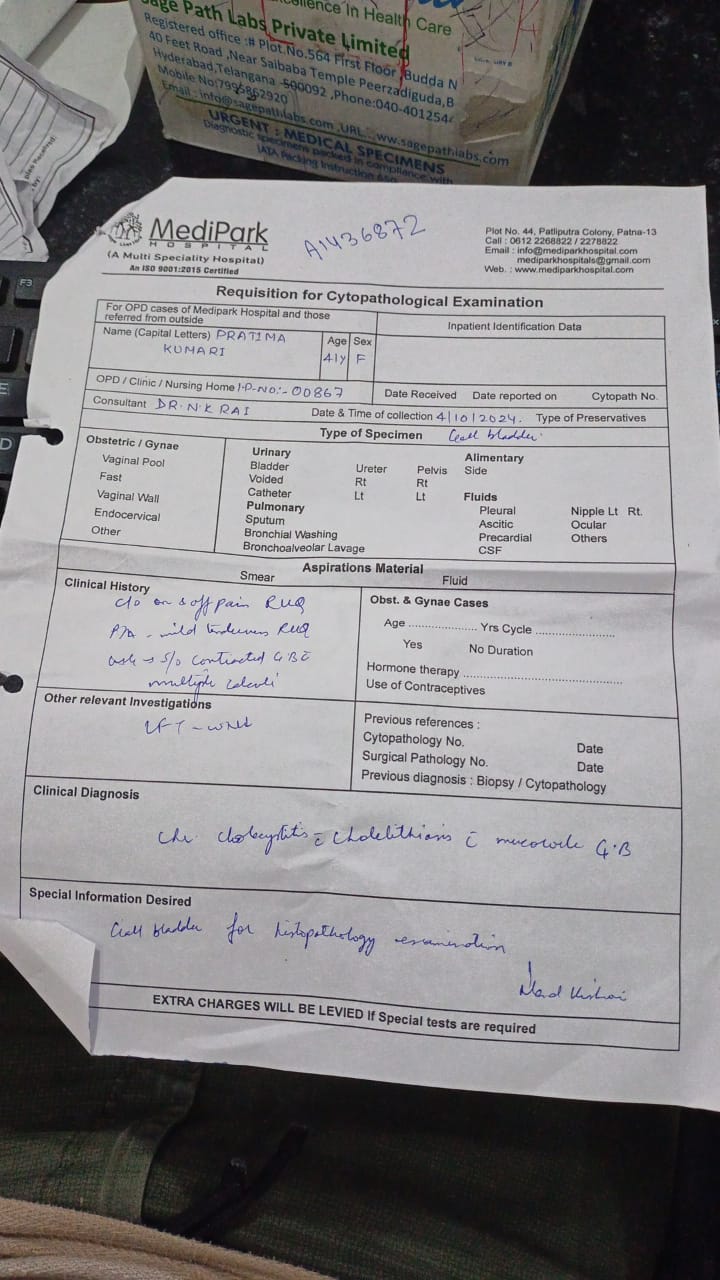 Excellence In Health Care
Sage Path Labs Private Limited
Registered office :# Plot.No.564 First Floor Budda N
40 Feet Road ,Near Saibaba Temple Peerzadiguda,B
Hyderabad,Telangana -500092 ,Phone:040-401254
Mobile No:7995862920
Email : info@sagepathlabs.com ,URL: ww.sagepathlabs.com
URGENT : MEDICAL SPECIMENS
Diagnostic specimens packed in compliance with
IATA Packing Instruction 650
F3
MediPark
HOSPITAL
(A Multi Speciality Hospital)
An ISO 9001:2015 Certified
A1436872
Plot No. 44, Patliputra Colony, Patna-13
Call : 0612 2268822 / 2278822
Email : info@mediparkhospital.com
mediparkhospitals@gmail.com
Web. : www.mediparkhospital.com
Requisition for Cytopathological Examination
For OPD cases of Medipark Hospital and those
referred from outside
Inpatient Identification Data
Name (Capital Letters) PRATIMA
KUMARI
Age Sex
41y F
OPD / Clinic / Nursing Home I.P.NO:- 00867
Date Received Date reported on Cytopath No.
Consultant DR. N.K RAI Date & Time of collection 4/10/2024. Type of Preservatives
Type of Specimen Gall bladder
Obstetric / Gynae
Vaginal Pool
Fast
Vaginal Wall
Endocervical
Other
Urinary
Bladder Ureter Pelvis
Voided Rt Rt
Catheter Lt Lt
Pulmonary
Sputum
Bronchial Washing
Bronchoalveolar Lavage
Alimentary
Side
Fluids
Pleural Nipple Lt Rt.
Ascitic Ocular
Precardial Others
CSF
Aspirations Material
Smear Fluid
Clinical History
c/o on & off pain RUQ
P/A - mild tenderness RUQ
s/o contracted G.B c̄
multiple calculi
Obst. & Gynae Cases
Age .................... Yrs Cycle .......................
Yes No Duration
Hormone therapy ..............................................
Use of Contraceptives
Other relevant Investigations
LFT - WNL
Previous references :
Cytopathology No. Date
Surgical Pathology No. Date
Previous diagnosis : Biopsy / Cytopathology
Clinical Diagnosis
Chr. cholecystitis c̄ cholelithiasis c̄ mucocele G.B
Special Information Desired
Gall bladder for histopathology examination
Nand Kishor
EXTRA CHARGES WILL BE LEVIED If Special tests are required